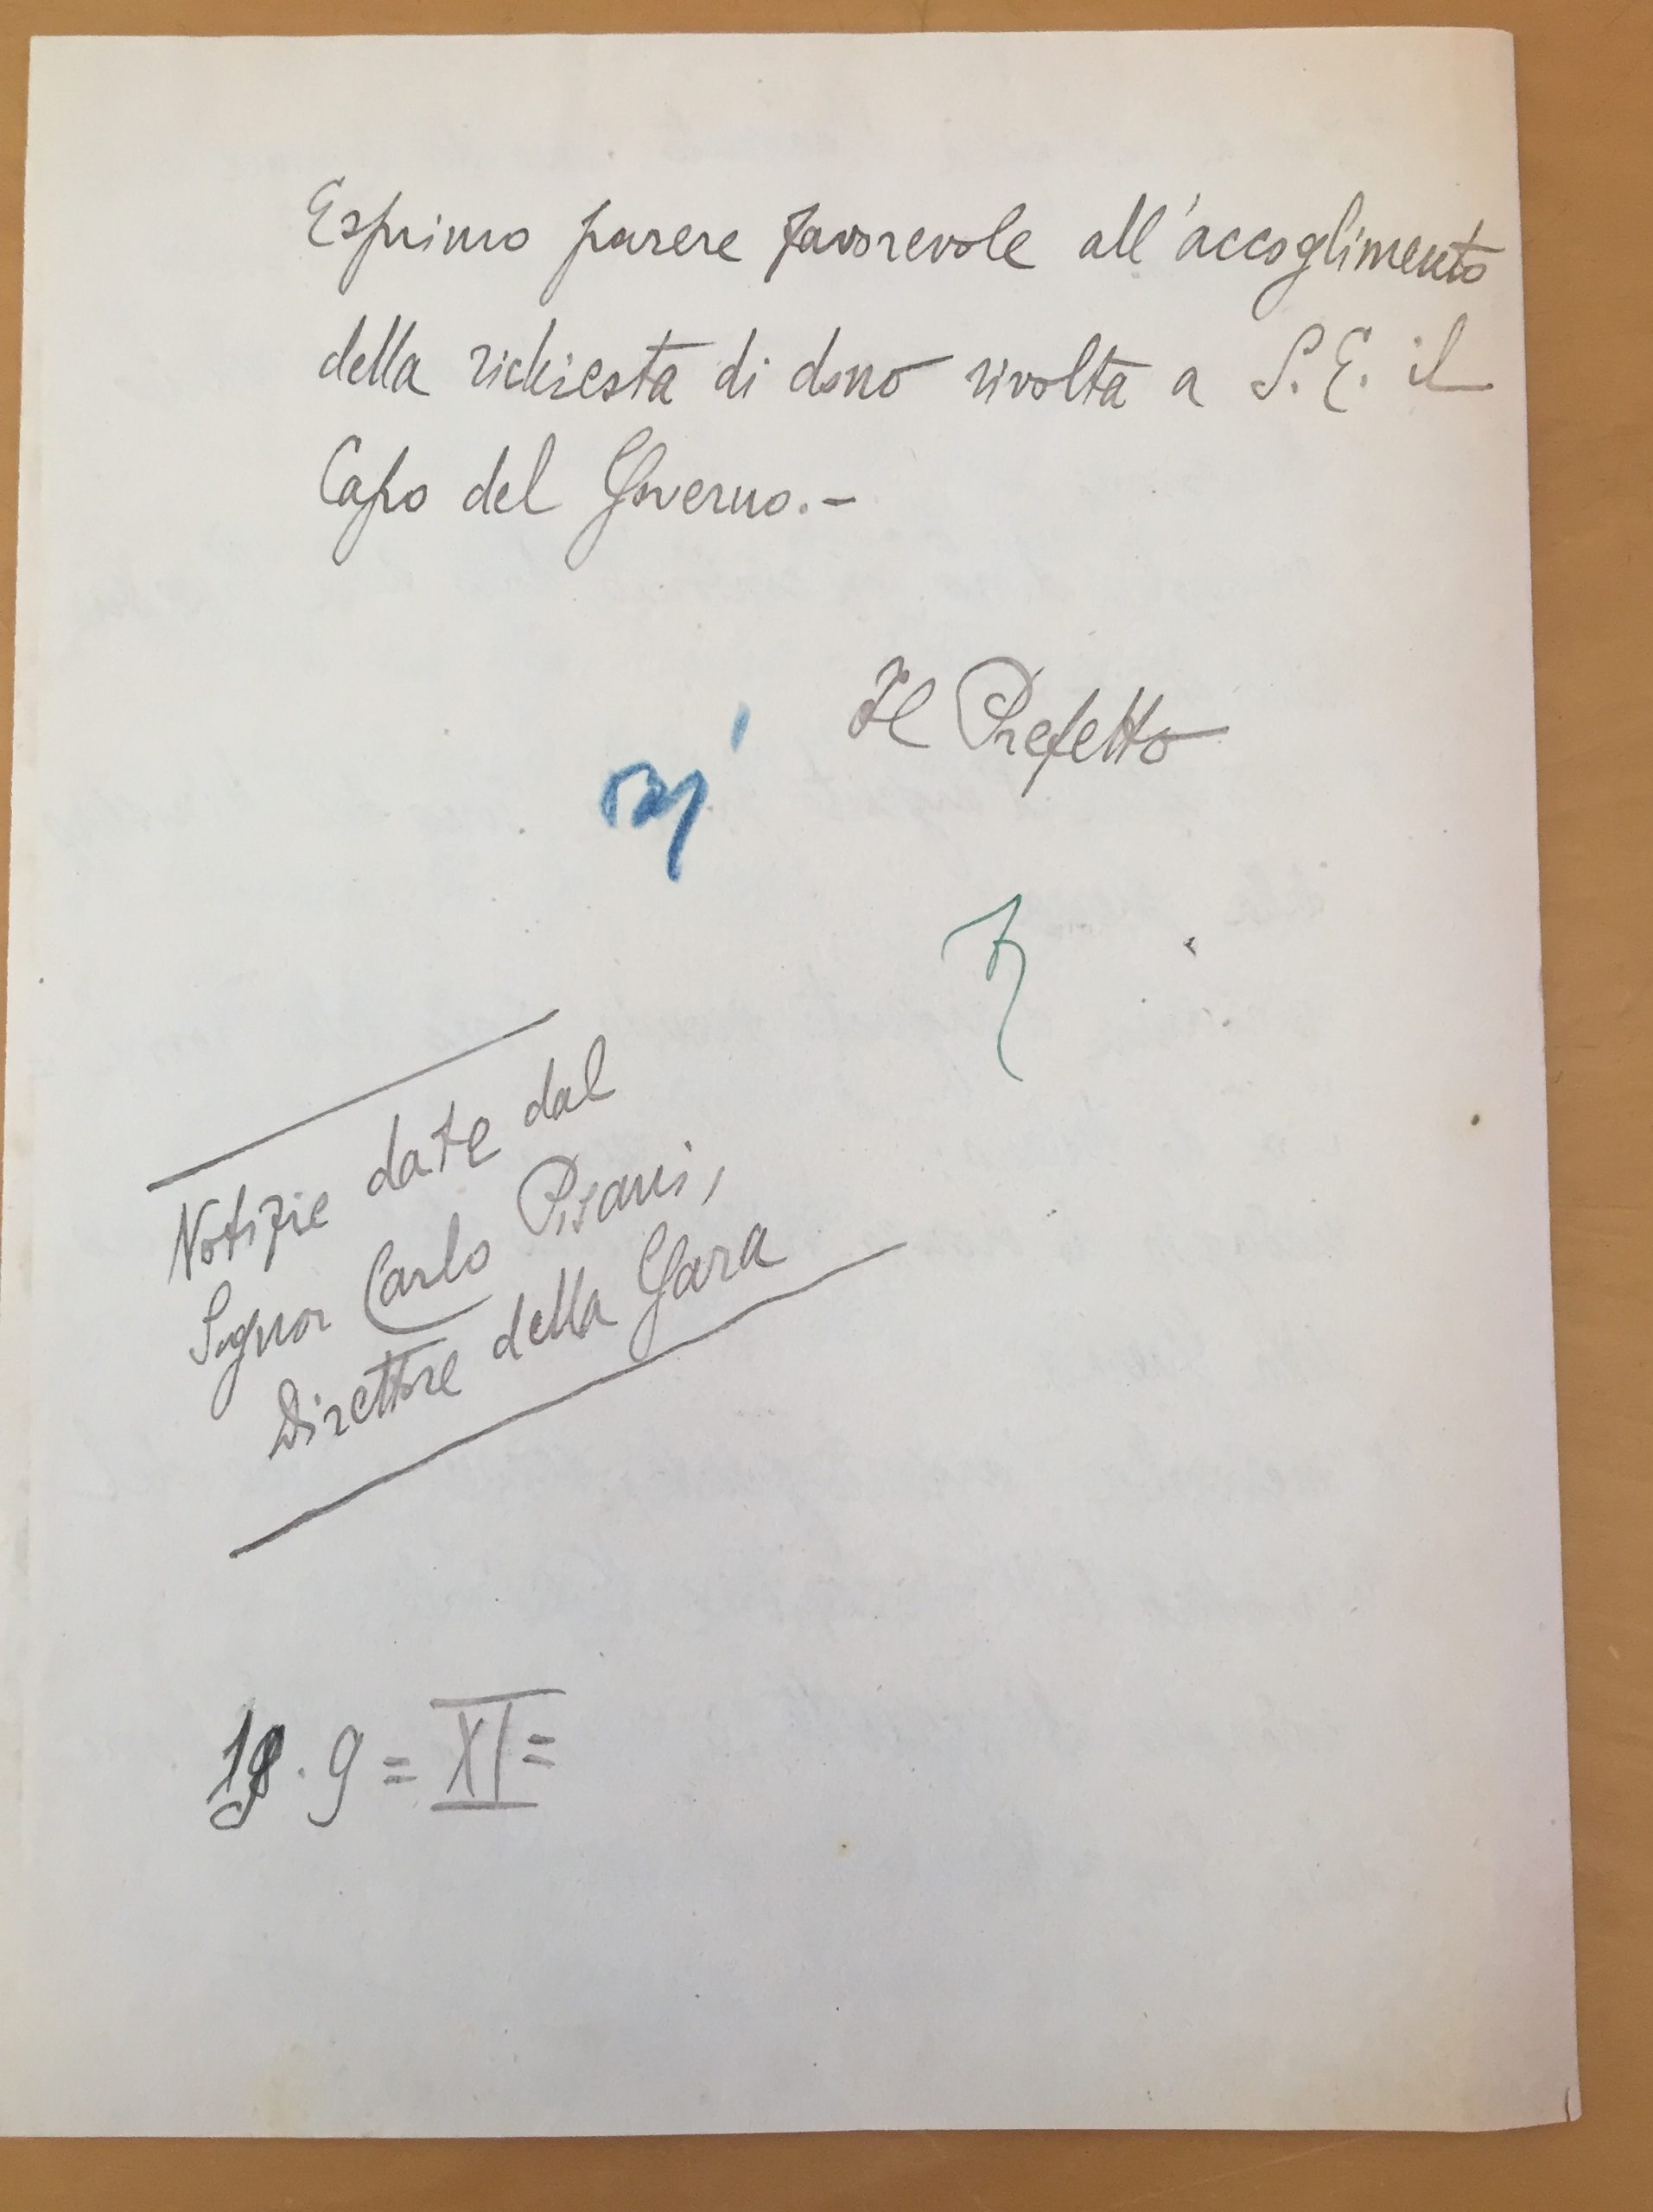 Esprimo parere favorevole all'accoglimento
della richiesta di dono rivolta a S. E. il
Capo del Governo.-
Il Prefetto
Notizie date dal
Signor Carlo Pisani,
Direttore della Gara
9 = XI =